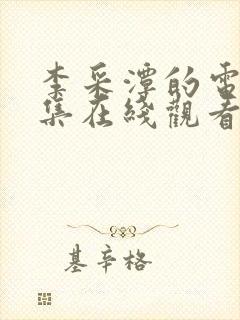 李采潭的電
集在綫觀看
基辛格